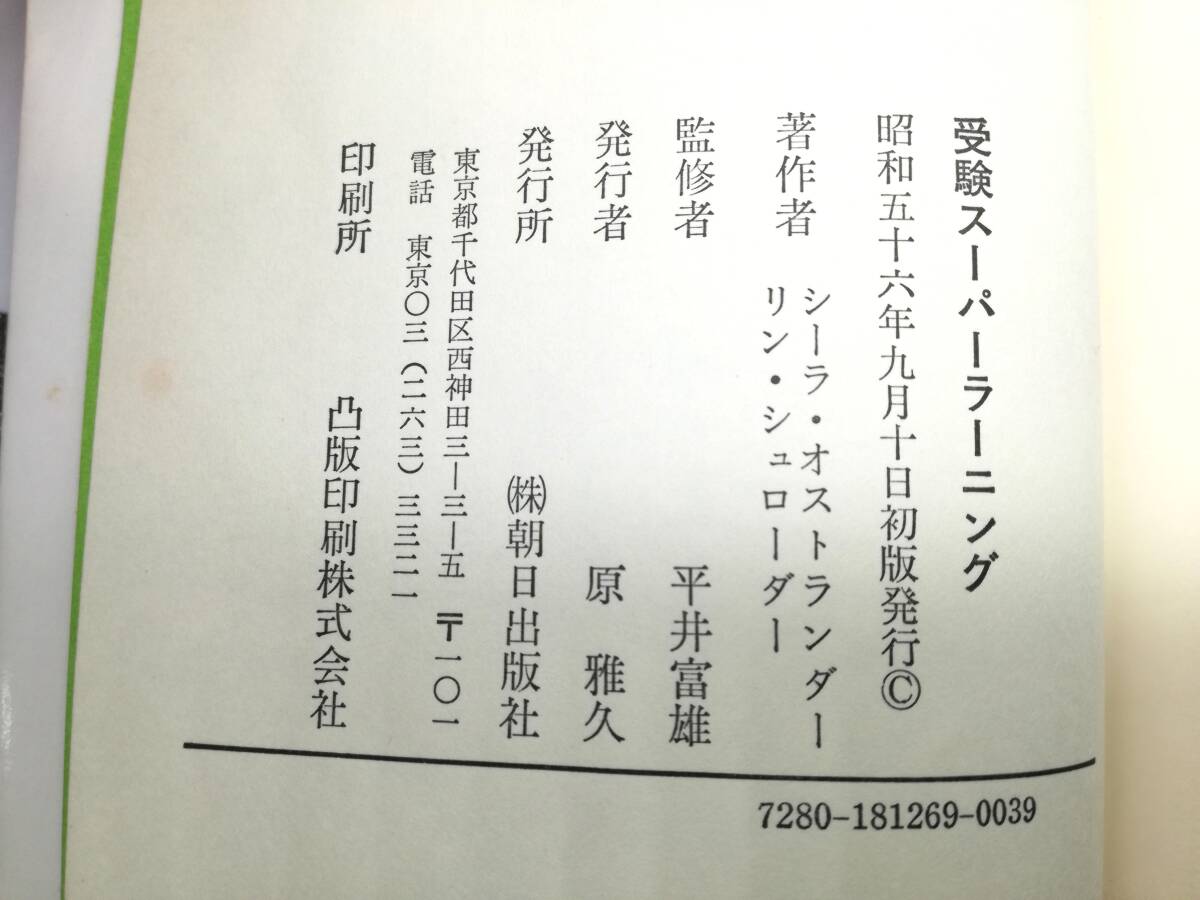 受験スーパーラーニング
昭和五十六年九月十日初版発行©
著作者 シーラ・オストランダー
リン・シュローダー
監修者 平井富雄
発行者 原 雅久
発行所 ㈱朝日出版社
東京都千代田区西神田三―三―五 〒一〇一
電話 東京〇三(二六三)三三二一
印刷所 凸版印刷株式会社
7280-181269-0039